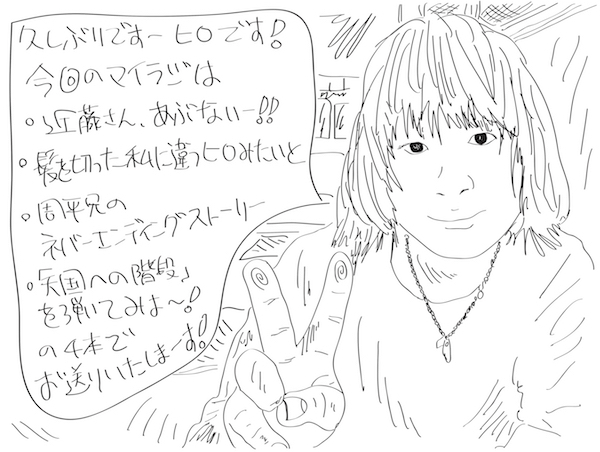 久しぶりですーヒロです!
今回のマイラジは
・近藤さん、あぶないー!!
・髪を切った私に違うヒロみたいと
・周平兄の
ネバーエンディングストーリー
・「天国への階段」
を弾いてみは〜!
の4本で
お送りいたしまーす!